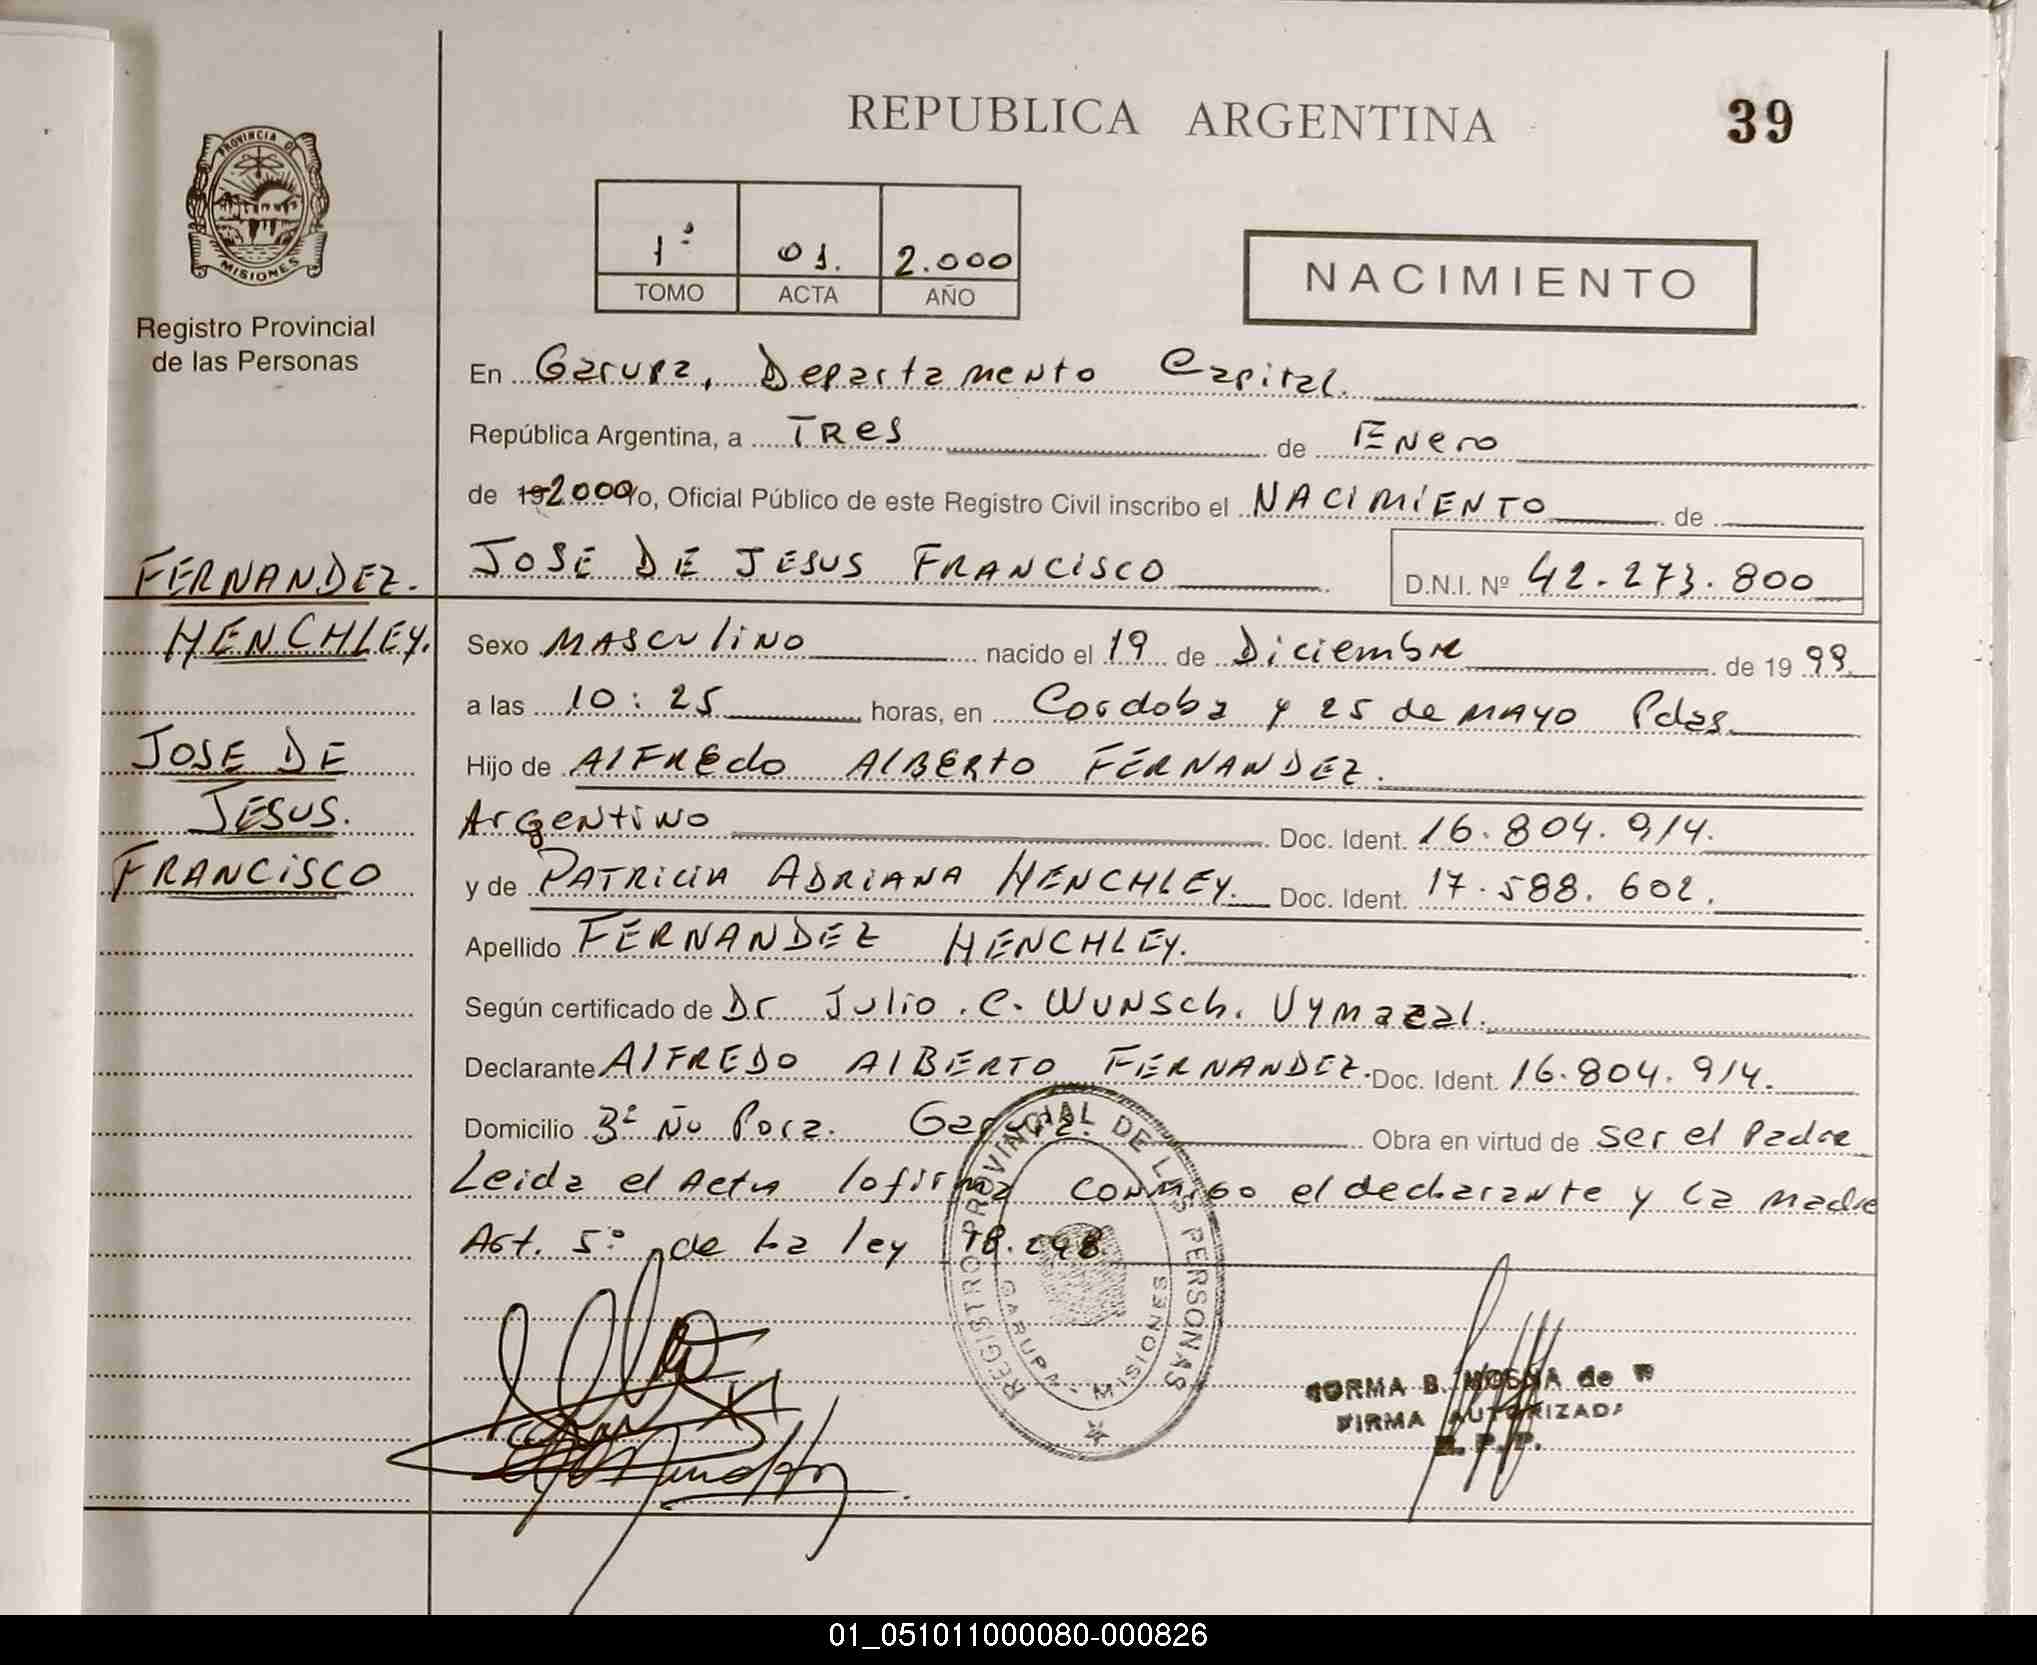 REPUBLICA ARGENTINA
39
PROVINCIA DE
MISIONES
Registro Provincial
de las Personas
1º 01. 2.000
TOMO ACTA AÑO
NACIMIENTO
En Garupa, Departamento Capital.
República Argentina, a Tres de Enero
de 2000 yo, Oficial Público de este Registro Civil inscribo el NACIMIENTO de
JOSE DE JESUS FRANCISCO D.N.I. Nº 42.273.800
FERNANDEZ.
HENCHLEY.
JOSE DE
JESUS.
FRANCISCO
Sexo MASCULINO nacido el 19 de Diciembre de 19 99.
a las 10:25 horas, en Cordoba y 25 de MAYO Pdas.
Hijo de AlFREdo AlBERto FERNANDEZ.
Argentino Doc. Ident. 16.804.914.
y de PATRICIA ADRIANA HENCHLEY. Doc. Ident. 17.588.602.
Apellido FERNANDEZ HENCHLEY.
Según certificado de Dr Julio C. Wunsch. Vymazal.
Declarante AlFREDO AlBERTO FERNANDEZ. Doc. Ident. 16.804.914.
Domicilio Garupa. Obra en virtud de ser el Padre
Leida el Acta lo firma conmigo el declarante y la madre
Art. 5º de la ley 18.248.
REGISTRO PROVINCIAL DE LAS PERSONAS
GARUPA - MISIONES
NORMA B. MOSNA de
FIRMA AUTORIZADA
R.P.P.
01_051011000080-000826